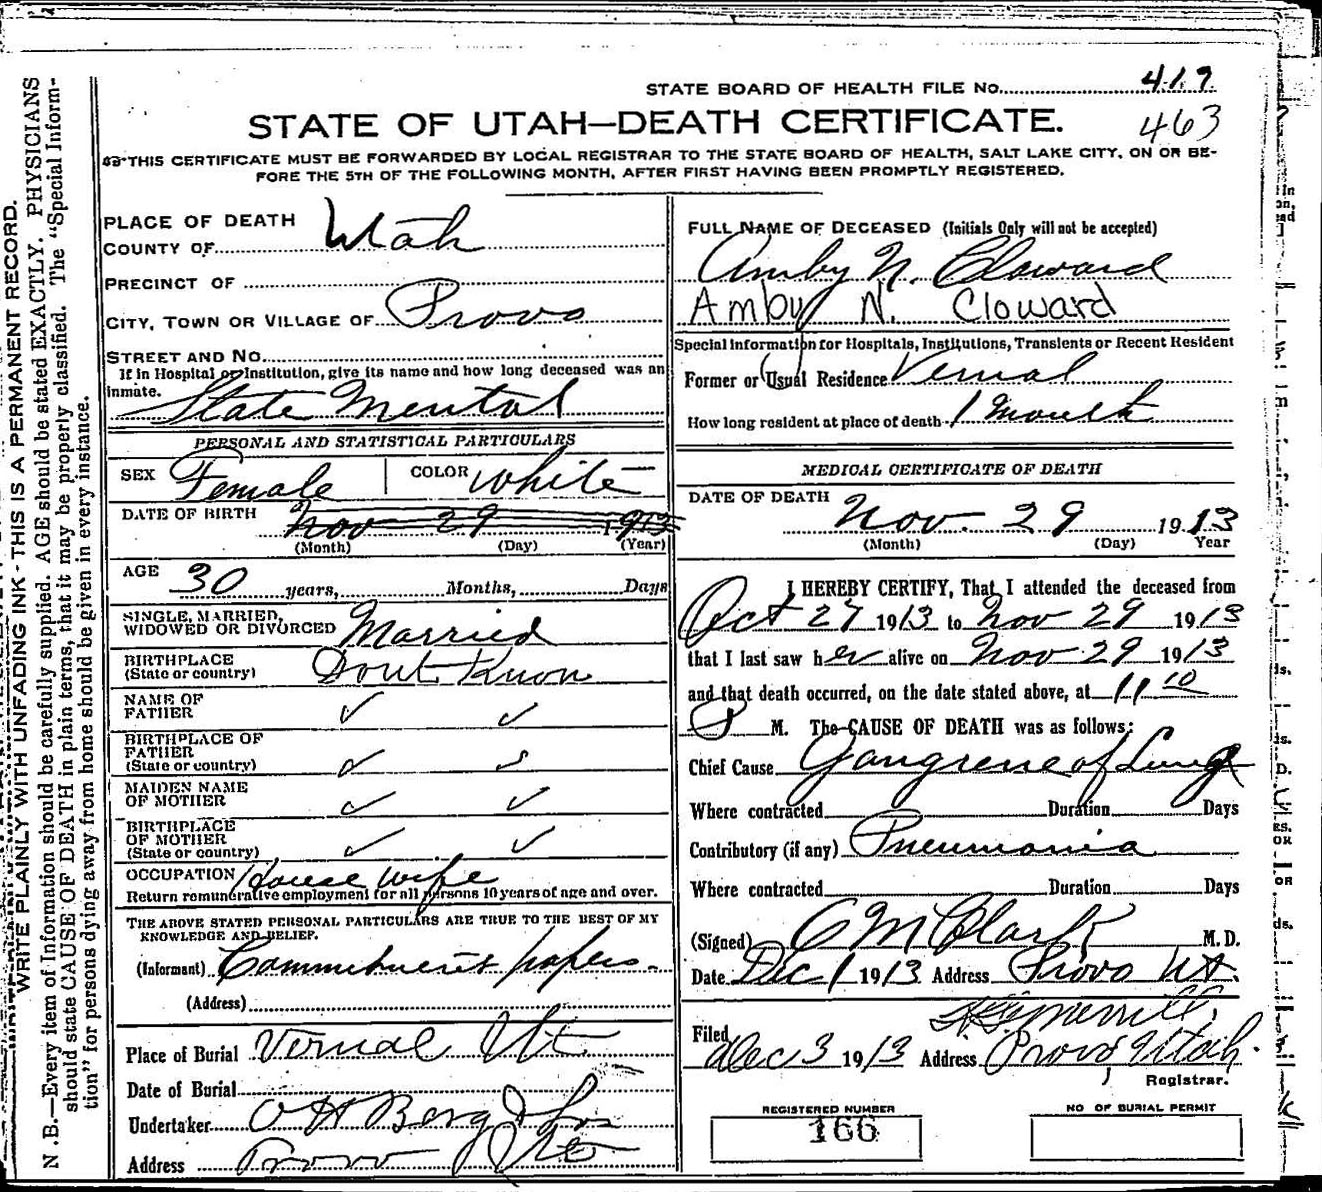 STATE BOARD OF HEALTH FILE No. 419
463
STATE OF UTAH—DEATH CERTIFICATE.
THIS CERTIFICATE MUST BE FORWARDED BY LOCAL REGISTRAR TO THE STATE BOARD OF HEALTH, SALT LAKE CITY, ON OR BE-
FORE THE 5TH OF THE FOLLOWING MONTH, AFTER FIRST HAVING BEEN PROMPTLY REGISTERED.
WRITE PLAINLY WITH UNFADING INK - THIS IS A PERMANENT RECORD.
N .B.—Every item of Information should be carefully supplied. AGE should be stated EXACTLY. PHYSICIANS
should state CAUSE OF DEATH in plain terms, that it may be properly classified. The "Special Inform-
tion" for persons dying away from home should be given in every instance.
PLACE OF DEATH
COUNTY OF Utah
PRECINCT OF
CITY, TOWN OR VILLAGE OF Provo
STREET AND No.
If in Hospital or Institution, give its name and how long deceased was an
inmate.
State Mental
PERSONAL AND STATISTICAL PARTICULARS
SEX Female COLOR White
DATE OF BIRTH Nov 29 1913
(Month) (Day) (Year)
AGE 30 years, Months, Days
SINGLE, MARRIED,
WIDOWED OR DIVORCED Married
BIRTHPLACE
(State or country) Dont Know
NAME OF
FATHER ✓ ✓
BIRTHPLACE OF
FATHER
(State or country) ✓
MAIDEN NAME
OF MOTHER ✓ ✓
BIRTHPLACE
OF MOTHER
(State or country) ✓ ✓
OCCUPATION House Wife
Return remunerative employment for all persons 10 years of age and over.
THE ABOVE STATED PERSONAL PARTICULARS ARE TRUE TO THE BEST OF MY
KNOWLEDGE AND BELIEF.
(Informant) Commitment papers.
(Address)
Place of Burial Vernal Ut
Date of Burial
Undertaker O H Berg & Son
Address Provo Ut
FULL NAME OF DECEASED (Initials Only will not be accepted)
Amby N. Cloward
Amby N. Cloward
Special Information for Hospitals, Institutions, Transients or Recent Resident
Former or Usual Residence Vernal
How long resident at place of death 1 Month
MEDICAL CERTIFICATE OF DEATH
DATE OF DEATH Nov. 29 1913
(Month) (Day) Year
I HEREBY CERTIFY, That I attended the deceased from
Oct 27 1913 to Nov 29 1913
that I last saw her alive on Nov 29 1913
and that death occurred, on the date stated above, at 11 10
P M. The CAUSE OF DEATH was as follows:
Chief Cause Gangrene of Lung
Where contracted Duration Days
Contributory (if any) Pneumonia
Where contracted Duration Days
(Signed) C M Clark M. D.
Date Dec 1 1913 Address Provo Ut.
Merrill
Filed Dec 3 1913 Address Provo Utah.
Registrar.
REGISTERED NUMBER
166
NO OF BURIAL PERMIT